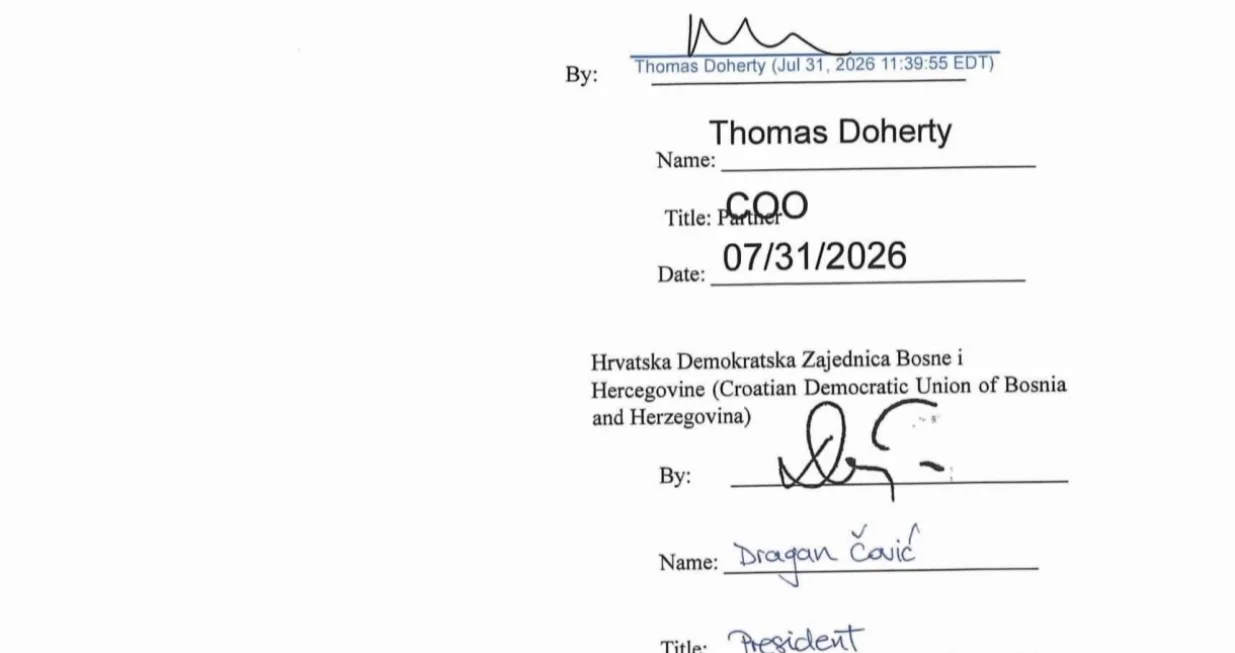 Thomas Doherty (Jul 31, 2026 11:39:55 EDT)
By:
Thomas Doherty
Name:
COO
Title: Partner
07/31/2026
Date:
Hrvatska Demokratska Zajednica Bosne i
Hercegovine (Croatian Democratic Union of Bosnia
and Herzegovina)
By:
Name: Dragan Čović
Title: President